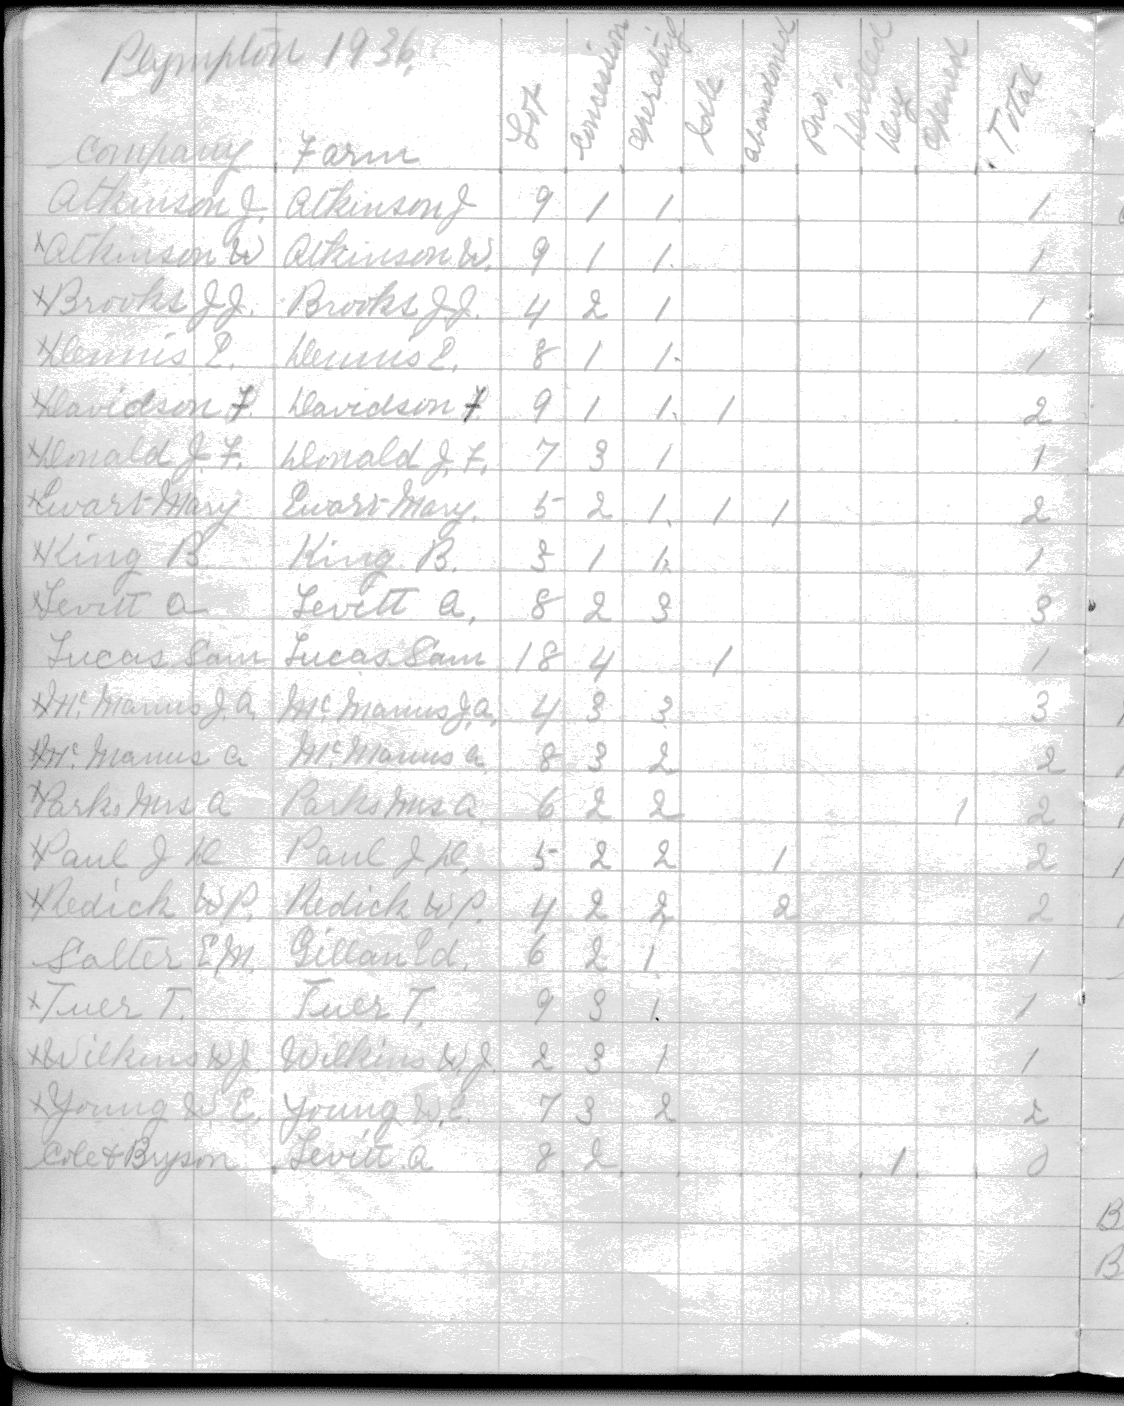 Plympton 1936.
Company Farm Lot Concession Operating Idle Abandoned Pro. Drilled Dry Opened Total
Atkinson J. Atkinson J 9 1 1 1
x Atkinson W Atkinson W. 9 1 1. 1
x Brooks J.J. Brooks J.J. 4 2 1 1
x Dennis E. Dennis E. 8 1 1. 1
x Davidson F. Davidson F. 9 1 1. 1 2
x Donald J. F. Donald J. F. 7 3 1 1
x Ewart Mary Ewart Mary. 5 2 1. 1 1 2
x King B King B. 3 1 1. 1
x Levitt A Levitt A. 8 2 3 3
Lucas Sam Lucas Sam 18 4 1 1
x Mc.Manus J.A. Mc.Manus J.A. 4 3 3 3
x Mc.Manus A Mc.Manus A. 8 3 2 2
x Parks Mrs A Parks Mrs A. 6 2 2 1 2
x Paul J D Paul J D. 5 2 2 1 2
x Redick W.P. Redick W.P. 4 2 2 2 2
Salter E.M. Gillan Ed. 6 2 1 1
x Tuer T. Tuer T. 9 3 1. 1
x Wilkins W.J. Wilkins W.J. 2 3 1 1
x Young W. E. Young W.E. 7 3 2 2
Cole & Bryson Levitt A 8 2 1 0
B
B